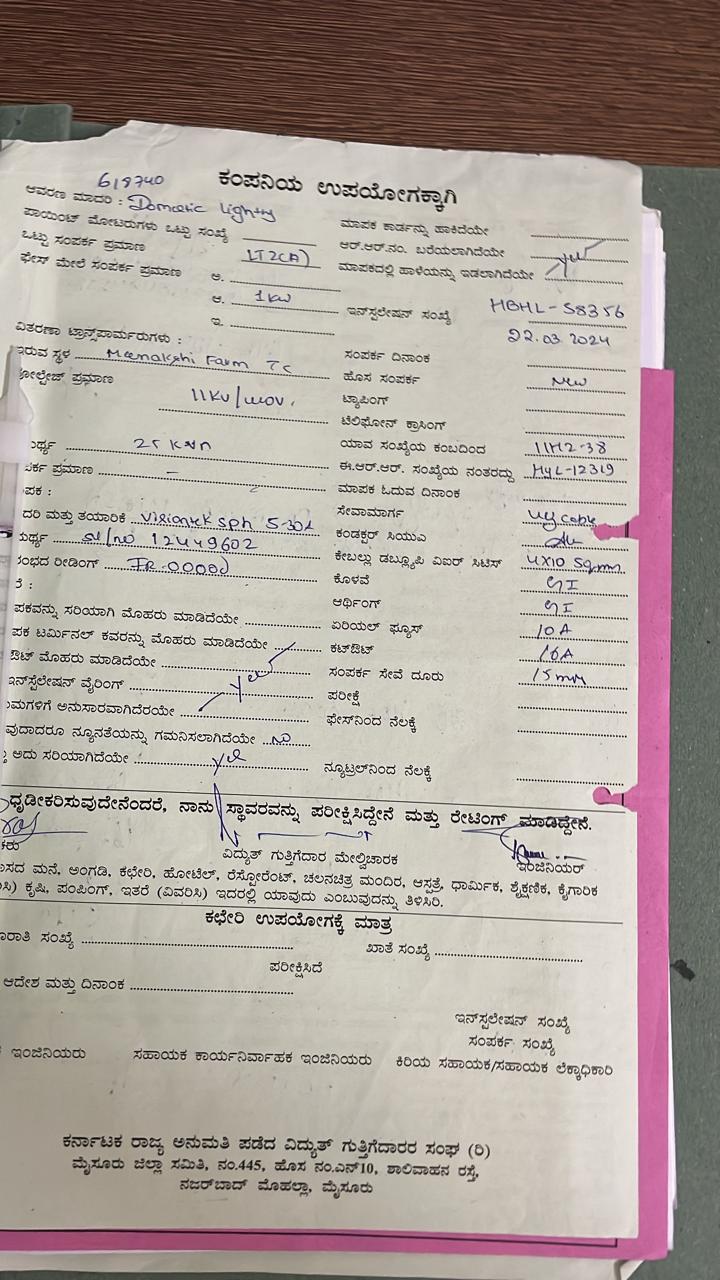 ಕಂಪನಿಯ ಉಪಯೋಗಕ್ಕಾಗಿ
618740
ಆವರಣ ಮಾದರಿ : Domestic lighty
ಮಾಪಕ ಕಾರ್ಡನ್ನು ಹಾಕಿದೆಯೇ
ಪಾಯಿಂಟ್ ಮೋಟರುಗಳು ಒಟ್ಟು ಸಂಖ್ಯೆ
ಆರ್.ಆರ್.ನಂ. ಬರೆಯಲಾಗಿದೆಯೇ yes
ಒಟ್ಟು ಸಂಪರ್ಕ ಪ್ರಮಾಣ LT2(A)
ಮಾಪಕದಲ್ಲಿ ಹಾಳೆಯನ್ನು ಇಡಲಾಗಿದೆಯೇ
ಫೇಸ್ ಮೇಲೆ ಸಂಪರ್ಕ ಪ್ರಮಾಣ ಅ.
ಆ. 1 kw
ಇನ್‌ಸ್ಟಲೇಷನ್ ಸಂಖ್ಯೆ HBHL-58356
ಇ.
22.03.2024
ವಿತರಣಾ ಟ್ರಾನ್ಸ್‌ಪಾರ್ಮರುಗಳು :
ಸಂಪರ್ಕ ದಿನಾಂಕ
ಇರುವ ಸ್ಥಳ Meenakshi Farm Tc
ಹೊಸ ಸಂಪರ್ಕ New
ೋಲ್ಟೇಜ್ ಪ್ರಮಾಣ 11KV/
ಟ್ಯಾಪಿಂಗ್
ಟೆಲಿಫೋನ್ ಕ್ರಾಸಿಂಗ್
ರ್ಥ್ಯ 25
ಯಾವ ಸಂಖ್ಯೆಯ ಕಂಬದಿಂದ 11H2-38
ರ್ಕ ಪ್ರಮಾಣ –
ಈ.ಆರ್.ಆರ್. ಸಂಖ್ಯೆಯ ನಂತರದ್ದು HyL-12319
ಪಕ :
ಮಾಪಕ ಓದುವ ದಿನಾಂಕ
ದರಿ ಮತ್ತು ತಯಾರಿಕೆ Visiontek sph 5-30A
ಸೇವಾಮಾರ್ಗ ug cable
ರ್ಥ್ಯ sl/no 12449602
ಕಂಡಕ್ಟರ್ ಸಿಯುಎ
ಂಭದ ರೀಡಿಂಗ್ IR-00000
ಕೇಬಲ್ಲು ಡಬ್ಲ್ಯೂಪಿ ವಿಐರ್ ಸಿಟಿಸ್ 4X10 Sq.mm
ಕೊಳವೆ GI
ಆರ್ಥಿಂಗ್ GI
ಪಕವನ್ನು ಸರಿಯಾಗಿ ಮೊಹರು ಮಾಡಿದೆಯೇ
ಏರಿಯಲ್ ಫ್ಯೂಸ್ 10A
ಪಕ ಟರ್ಮಿನಲ್ ಕವರನ್ನು ಮೊಹರು ಮಾಡಿದೆಯೇ
ಕಟ್‌ಔಟ್ 16A
ಔಟ್ ಮೊಹರು ಮಾಡಿದೆಯೇ
ಸಂಪರ್ಕ ಸೇವೆ ದೂರು 15
ಇನ್‌ಸ್ಟಲೇಷನ್ ವೈರಿಂಗ್ yes
ಪರೀಕ್ಷೆ
ಮಗಳಿಗೆ ಅನುಸಾರವಾಗಿದೆರಯೇ
ಫೇಸ್‌ನಿಂದ ನೆಲಕ್ಕೆ
ವುದಾದರೂ ನ್ಯೂನತೆಯನ್ನು ಗಮನಿಸಲಾಗಿದೆಯೇ no
ಅದು ಸರಿಯಾಗಿದೆಯೇ yes
ನ್ಯೂಟ್ರಲ್‌ನಿಂದ ನೆಲಕ್ಕೆ
ಧೃಡೀಕರಿಸುವುದೇನೆಂದರೆ, ನಾನು ಸ್ಥಾವರವನ್ನು ಪರೀಕ್ಷಿಸಿದ್ದೇನೆ ಮತ್ತು ರೇಟಿಂಗ್ ಮಾಡಿದ್ದೇನೆ.
ವಿದ್ಯುತ್ ಗುತ್ತಿಗೆದಾರ ಮೇಲ್ವಿಚಾರಕ
ಇಂಜಿನಿಯರ್
ಸದ ಮನೆ, ಅಂಗಡಿ, ಕಛೇರಿ, ಹೋಟೆಲ್, ರೆಸ್ಟೋರೆಂಟ್, ಚಲನಚಿತ್ರ ಮಂದಿರ, ಆಸ್ಪತ್ರೆ, ಧಾರ್ಮಿಕ, ಶೈಕ್ಷಣಿಕ, ಕೈಗಾರಿಕ
ಸಿ) ಕೃಷಿ, ಪಂಪಿಂಗ್, ಇತರೆ (ವಿವರಿಸಿ) ಇದರಲ್ಲಿ ಯಾವುದು ಎಂಬುವುದನ್ನು ತಿಳಿಸಿರಿ.
ಕಛೇರಿ ಉಪಯೋಗಕ್ಕೆ ಮಾತ್ರ
ರಾತಿ ಸಂಖ್ಯೆ
ಖಾತೆ ಸಂಖ್ಯೆ
ಪರೀಕ್ಷಿಸಿದೆ
ಆದೇಶ ಮತ್ತು ದಿನಾಂಕ
ಇನ್‌ಸ್ಟಲೇಷನ್ ಸಂಖ್ಯೆ
ಸಂಪರ್ಕ ಸಂಖ್ಯೆ
ಇಂಜಿನಿಯರು
ಸಹಾಯಕ ಕಾರ್ಯನಿರ್ವಾಹಕ ಇಂಜಿನಿಯರು
ಕಿರಿಯ ಸಹಾಯಕ/ಸಹಾಯಕ ಲೆಕ್ಕಾಧಿಕಾರಿ
ಕರ್ನಾಟಕ ರಾಜ್ಯ ಅನುಮತಿ ಪಡೆದ ವಿದ್ಯುತ್ ಗುತ್ತಿಗೆದಾರರ ಸಂಘ (ರಿ)
ಮೈಸೂರು ಜಿಲ್ಲಾ ಸಮಿತಿ, ನಂ.445, ಹೊಸ ನಂ.ಎನ್10, ಶಾಲಿವಾಹನ ರಸ್ತೆ,
ನಜರ್‌ಬಾದ್ ಮೊಹಲ್ಲಾ, ಮೈಸೂರು